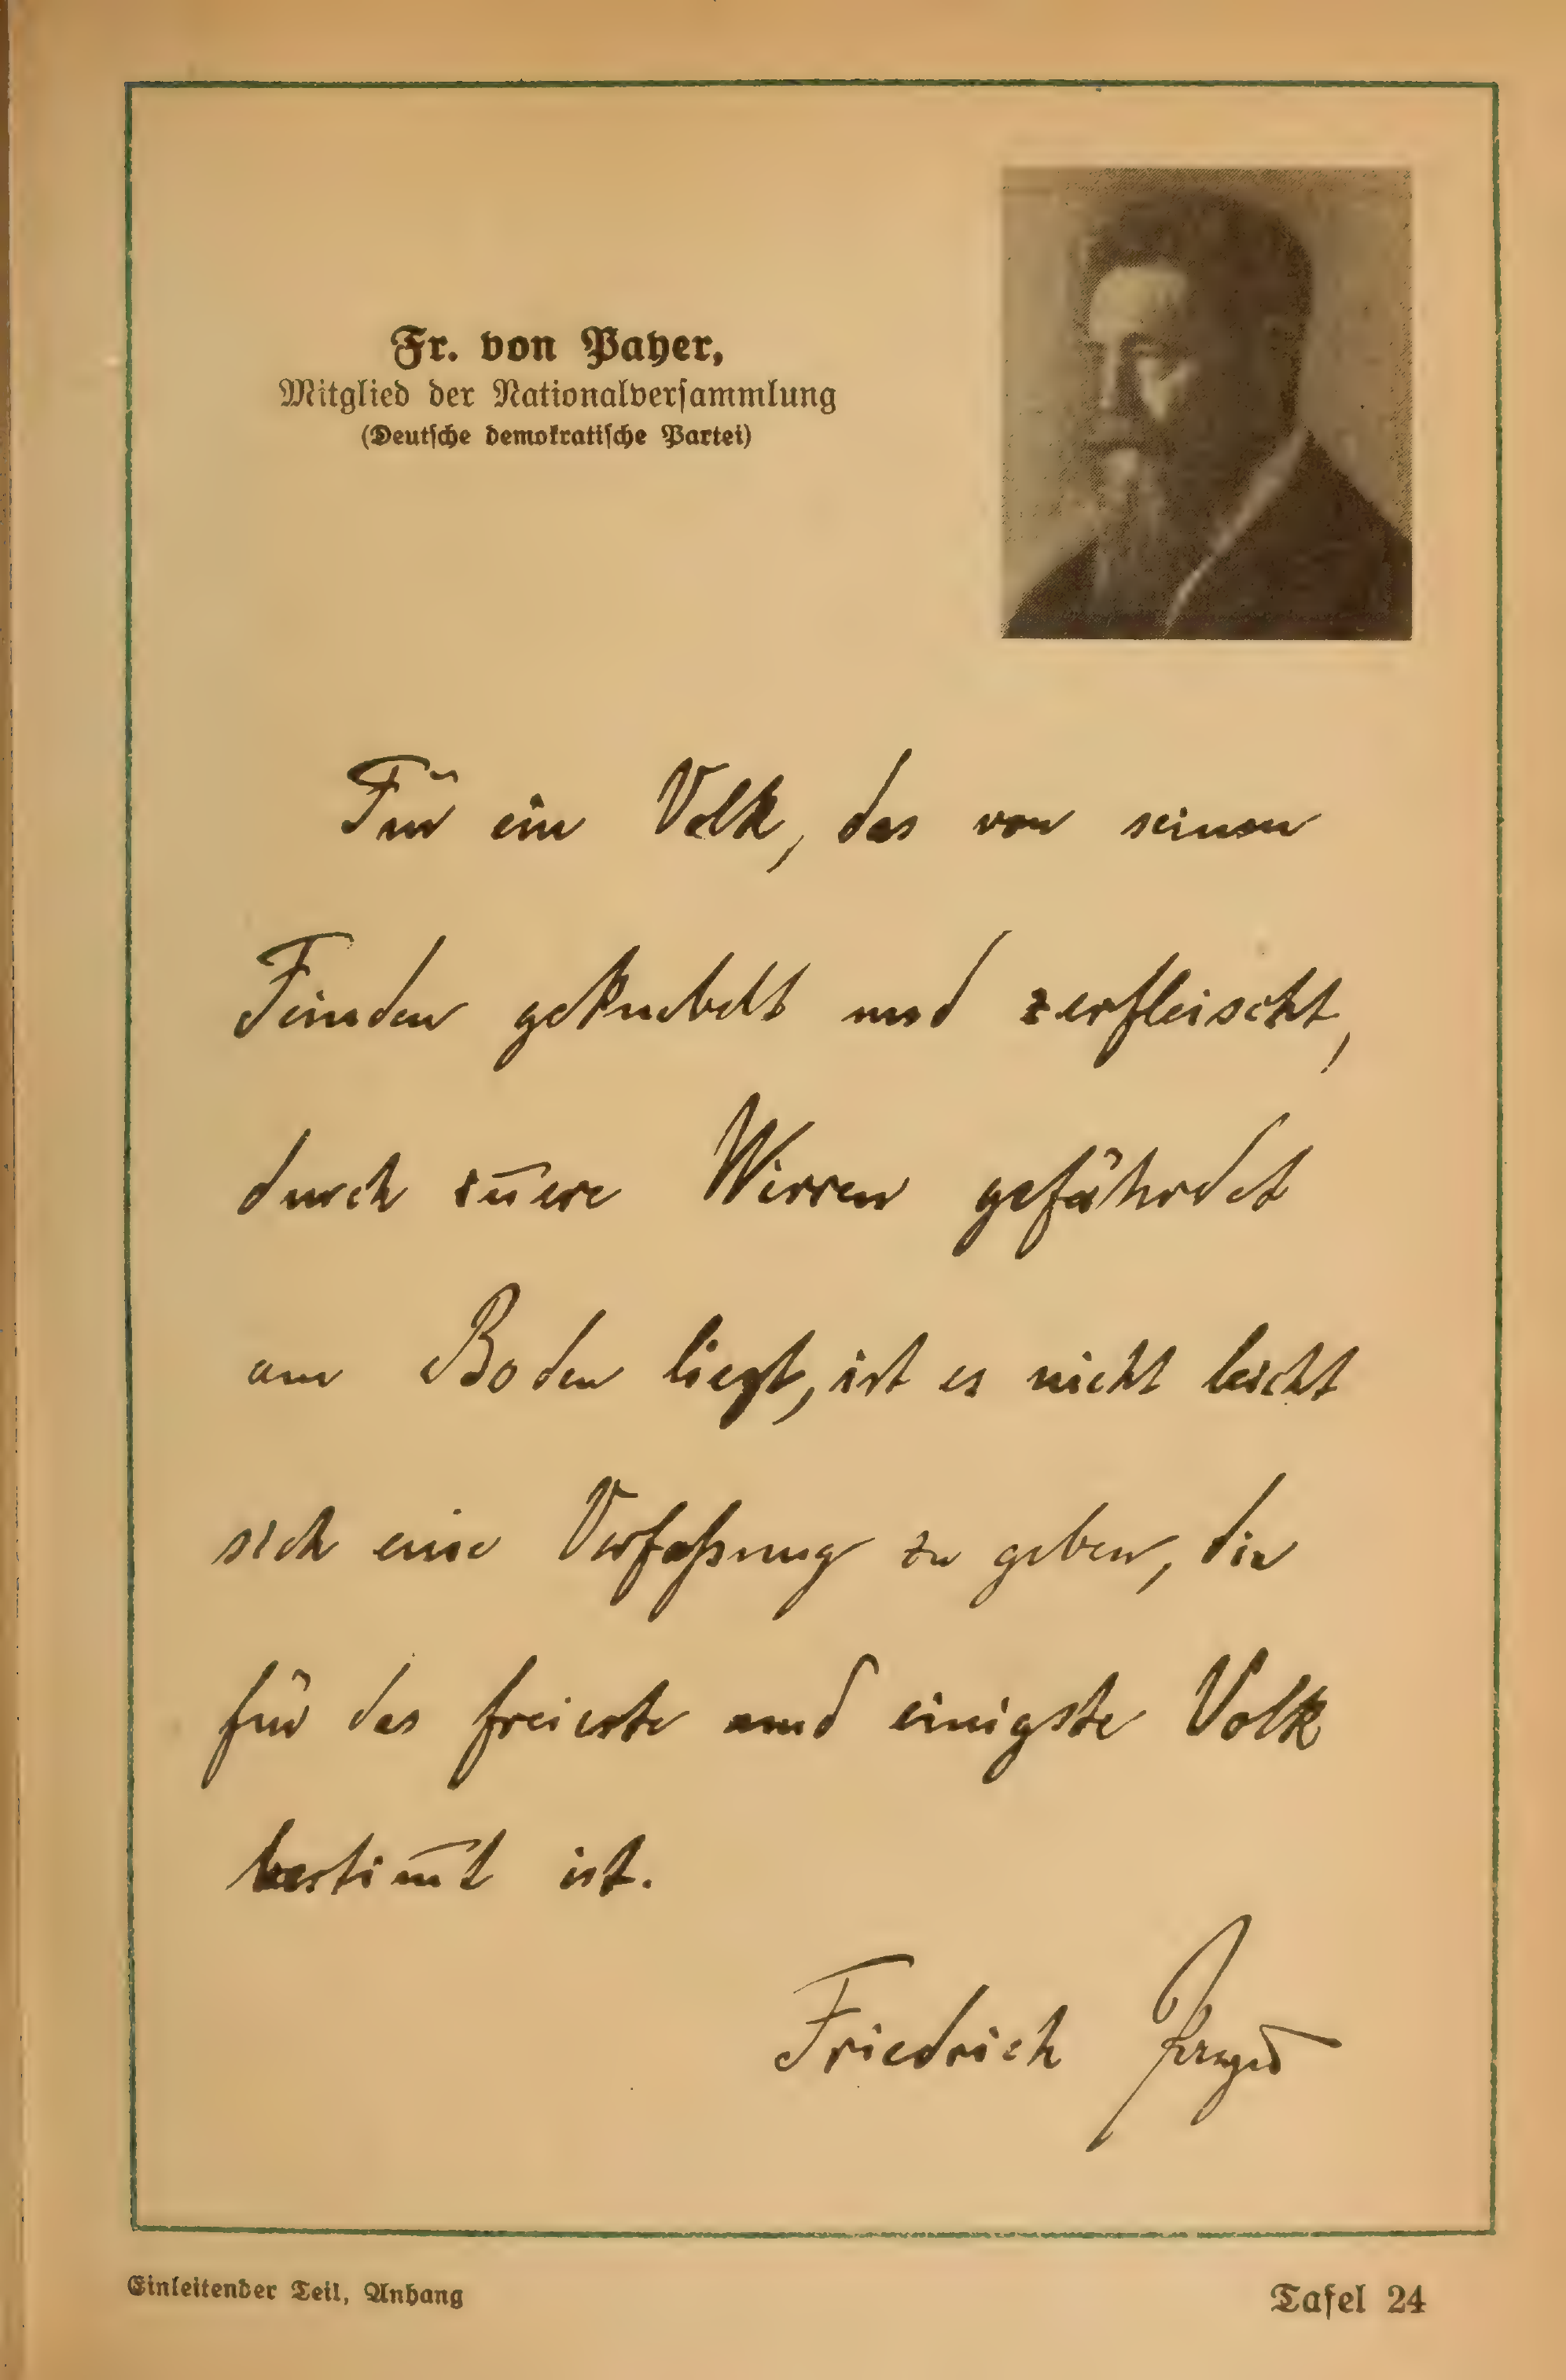 Fr. von Payer,
Mitglied der Nationalversammlung
(Deutsche demokratische Partei)
Für ein Volk, das von seinen
Feinden geknebelt und zerfleischt,
durch iñere Wirren gefährdet
am Boden liegt, ist es nicht leicht
sich eine Verfaßung zu geben, die
für das freieste und einigste Volk
bestim̄t ist.
Friedrich Payer
Einleitender Teil, Anhang
Tafel 24